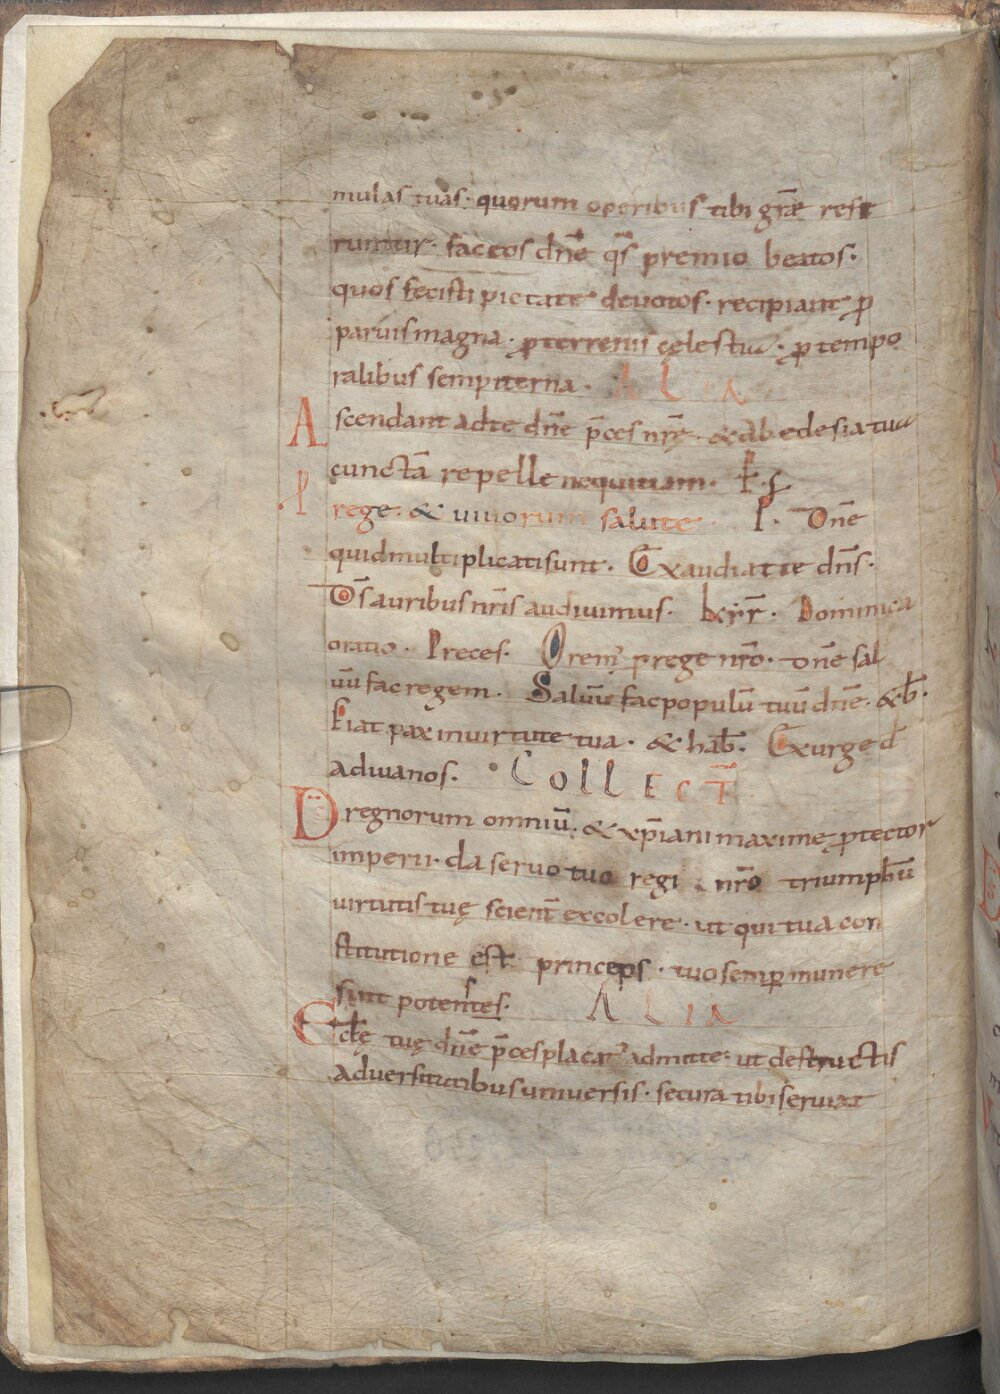 mulas tuas· quorum operibus tibi grãe refe
runtur· factos dñe q̃s premio beatos·
quos fecisti pietate deuotos· recipiant ꝓ
paruis magna· ꝓ terrenis cęlestia· ꝓ tempo
ralibus sempiterna· ALIA
Ascendant ad te dñe p̃ces nr̃ę· & ab ecclesia tua
cunctã repelle nequitiam·
P rege· & uiuorum salute P· Dñe
quid multiplicati sunt· Exaudiat te dñs·
Ds̃ auribus nr̃is audiuimus· kyrr̃· Dominica
oratio· Preces· Orem̃ p rege nr̃o· dñe sal
uũ fac regem· Saluũ fac populũ tuũ dñe· & b̃·
Fiat pax in uirtute tua· & hab̃· Exurge d̃
adiuua nos· COLLECT̃
D̃s regnorum omniũ· & xp̃iani maximę ꝓtector
imperii· da seruo tuo regi nr̃o triumphũ
uirtutis tuę scient̃ excolere· ut qui tua con
stitutione est princeps· tuo semꝑ munere
sint potentes· ALIA
Eccłę tuę dñe p̃ces placat᷒ admitte· ut destructis
aduersitatibus uniuersis· secura tibi seruiat